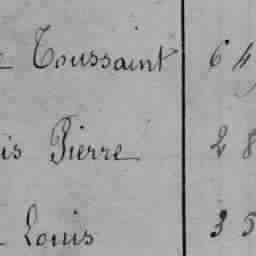 Toussaint 64
is Pierre 28
Louis 35